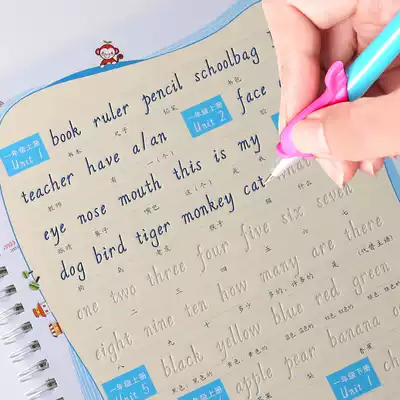 book ruler pencil schoolbag
一年级上册 Unit 1 书本 尺子 铅笔 书包
teacher have a/an 一年级上册 Unit 2 face
教师 有 一(个)
eye nose mouth this is my
眼睛 鼻子 嘴巴 这(个) 是
dog bird tiger monkey cat what
狗 鸟 老虎 猴子 什么
one two three four five six seven
一 二 三 四 五 六 七
eight nine ten how many are there
八 九 十 多少
black yellow blue red green
一年级上册 Unit 5
apple pear banana
一年级下册 Unit 1